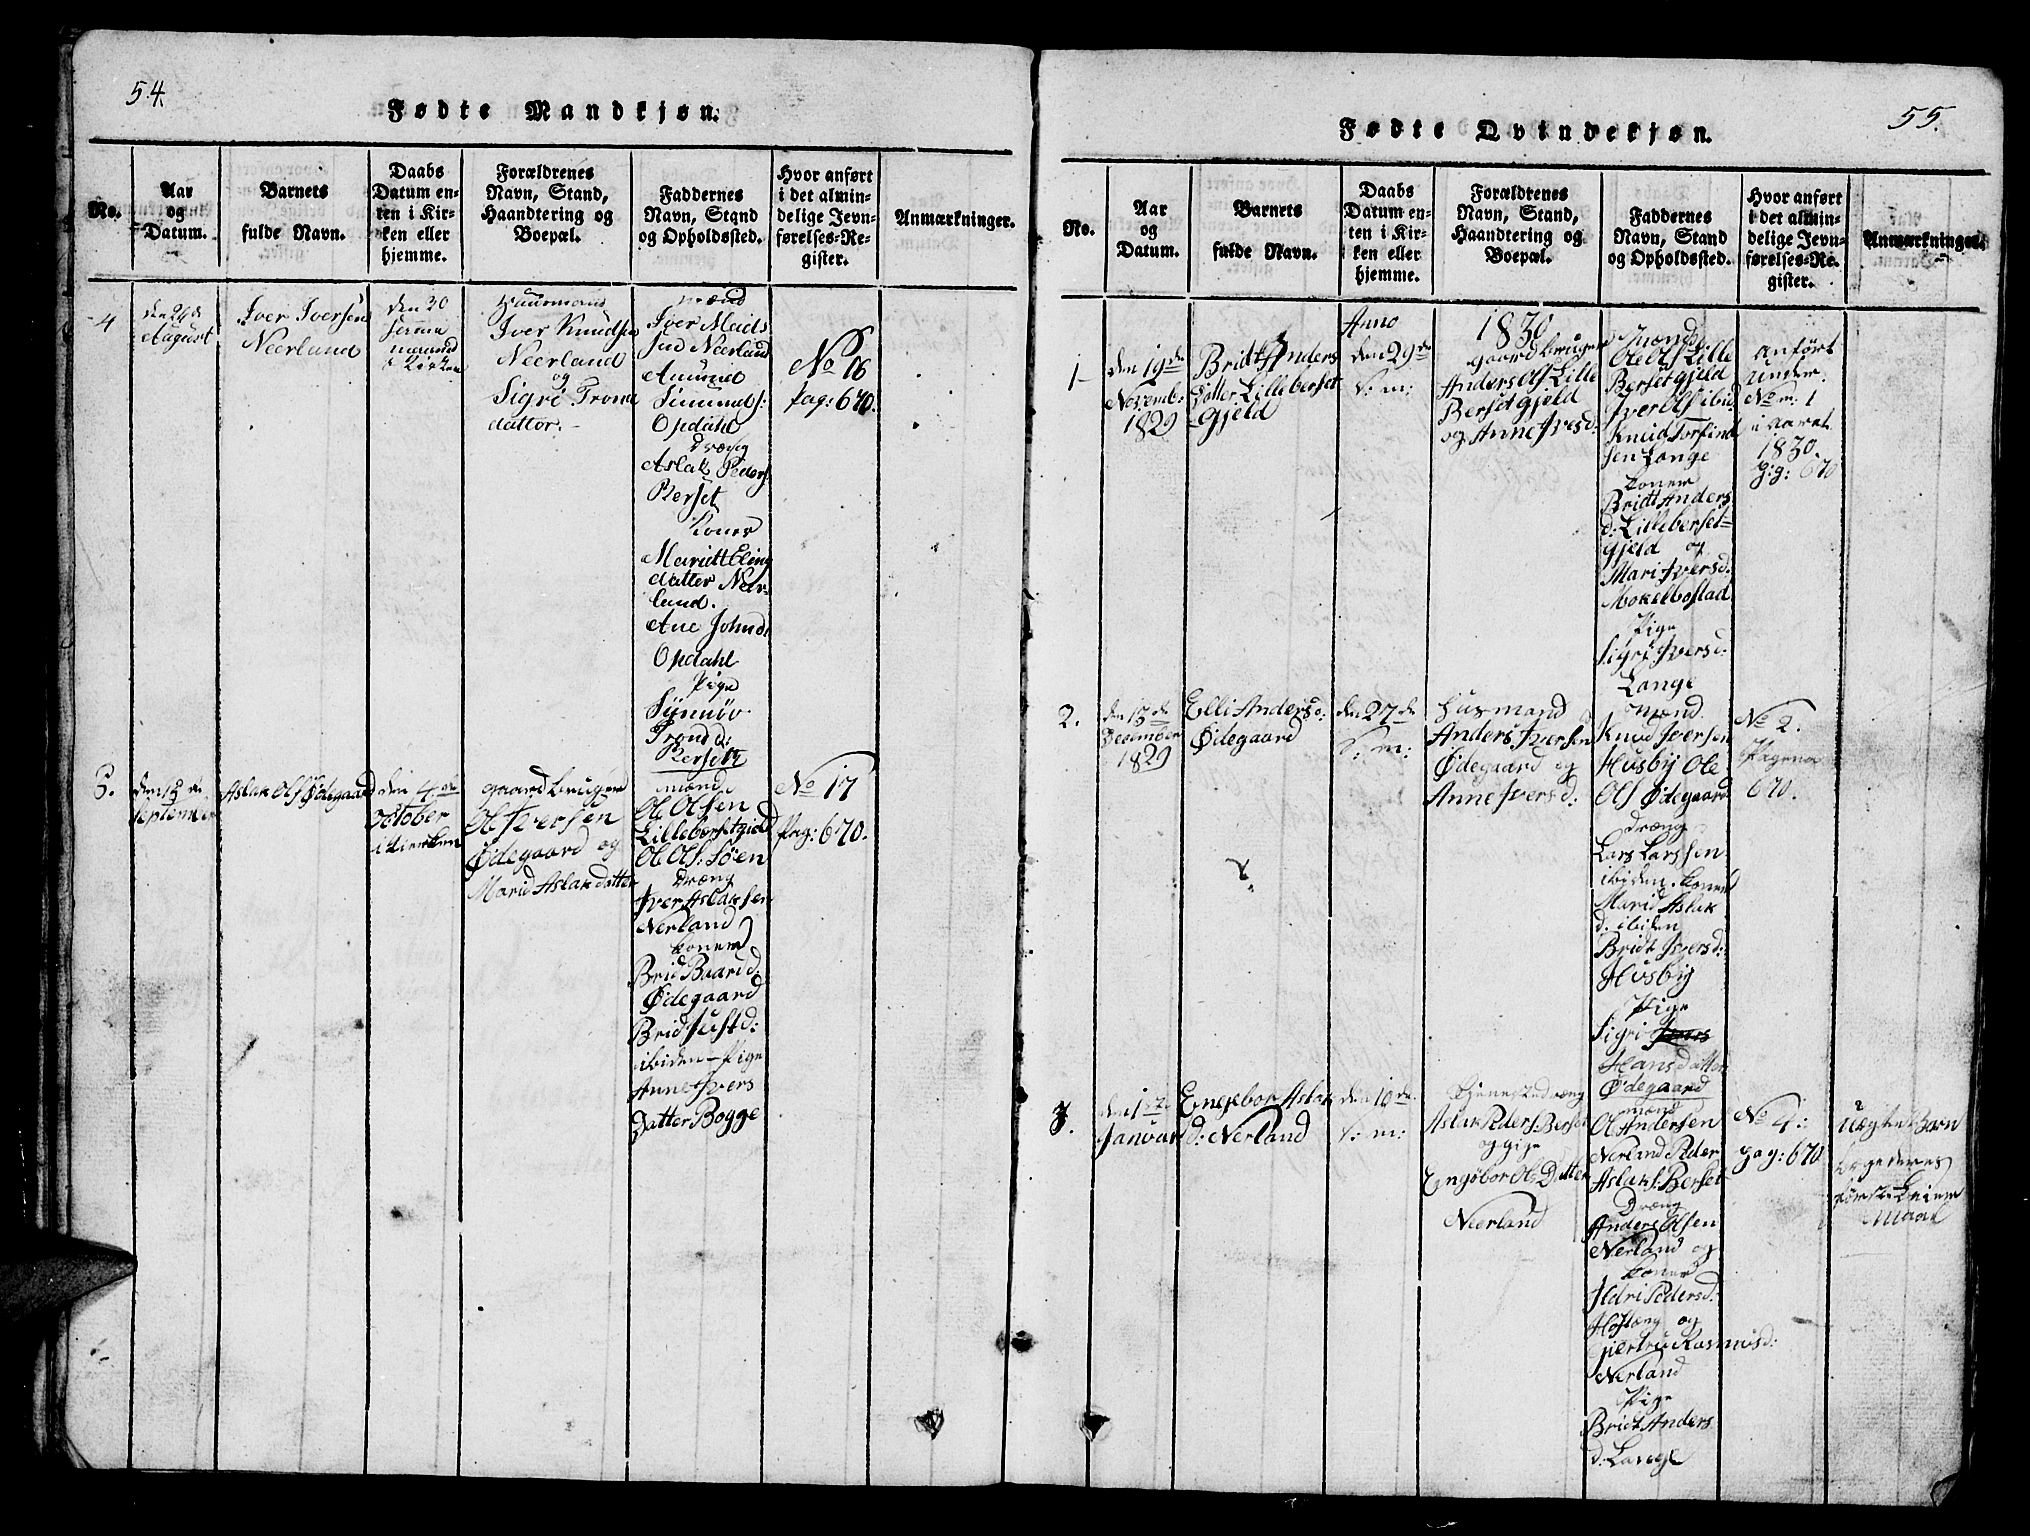 54.
Fødte Mandkjøn.
No.
Aar
og
Datum.
Barnets
fulde Navn.
Daabs
Datum en-
ten i Kir-
ken eller
hjemme.
Forældrenes
Navn, Stand,
Haandtering og
Boepæl.
Faddernes
Navn, Stand
og Opholdssted.
Hvor anført
i det almin-
delige Jevn-
førelses-Re-
gister.
Anmærkninger.
4
August
Iver Iversen
Neerland
den 30
i Kirken
Huusmand
Iver Knudsen
Neerland
og
Sigri Trond
datter.
mænd
Iver
Neerland
Amund
Opdahl
Dræng
Aslak Peders
Berset
Koner
Marritt Eling
datter Neer-
land.
Ane Johnd:
Opdahl
Pige
Synnöv
Trond d:
Berset
No 16
pag: 670.
5.
den 12 de
September
Aslak Ols Ødegaard
den 4 de
October
i Kierken
gaardbruger
Ol Iversen
Ødegaard og
Marid Aslak datter
mænd
Ol Olsen
Lillebersetgield
Ol Ols: Söen
Dræng
Iver Aslaksen
Nerland
koner
Brid Baard d.
Ødegaard
Brid Just d:
ibiden – Pige
Anne Ivers
Datter Bogge
No 17
Pag: 670.
55.
Fødte Qvindekjøn.
No.
Aar
og
Datum.
Barnets
fulde Navn.
Daabs
Datum en-
ten i Kir-
ken eller
hjemme.
Forældrenes
Navn, Stand,
Haandtering og
Boepæl.
Faddernes
Navn, Stand
og Opholdssted.
Hvor anført
i det almin-
delige Jevn-
førelses-Re-
gister.
Anmærkninger.
Anno
1830
1
den 19 de
Novemb:
1829
Bridt Anders
Datter Lilleberset-
gjeld
den 29 de
S: m:
gaardbruger
Anders Ols Lille
Berset gjeld
og Anne Ivers d:
mænd
Ole Ols Lille
Berset gjeld
Iver Ols ibid
Knud Torfind
sen Lange
koner
Bridt Anders
d: Lilleberset-
gjeld og
Mari Ivers d:
Mokelbostad
Pige
Sigri Ivers d:
Lange
anført
under
No m: 1
i aaret
1830.
Pig: 670
2.
den 13 de
December
1829
Elli Anders d:
Ødegaard
den 27 de
S: m:
Husmand
Anders Iversen
Ødegaard og
Anne Ivers d:
mænd.
Knud Iversen
Husby Ole
Ols Ødegaard
dræng
Lars Larssen
ibiden. koner
Marid Aslak
d. ibiden
Bridt Ivers d:
Husby
Pige
Sigri Ivers
Hans datter
Ødegaard
No 2.
Pagena
670.
3.
den 1 de
Januar
Engebor Aslak
d: Nerland
den 10 de
S: m:
Tjenestedræng
Aslak Peders: Berset
og pige
Engebor Ols Datter
Neerland
mænd
Ol Andersen
Nerland Peder
Aslaks: Berset
Dræng
Anders Olsen
Nerland og
koner
Ildri Peders d:
Hostæng og
giertru Rasmus d:
Nerland
Pige
Bridt Anders
d: Lange
No 4:
pag: 670
Uægte Barn
begge deres
første Leier
maal